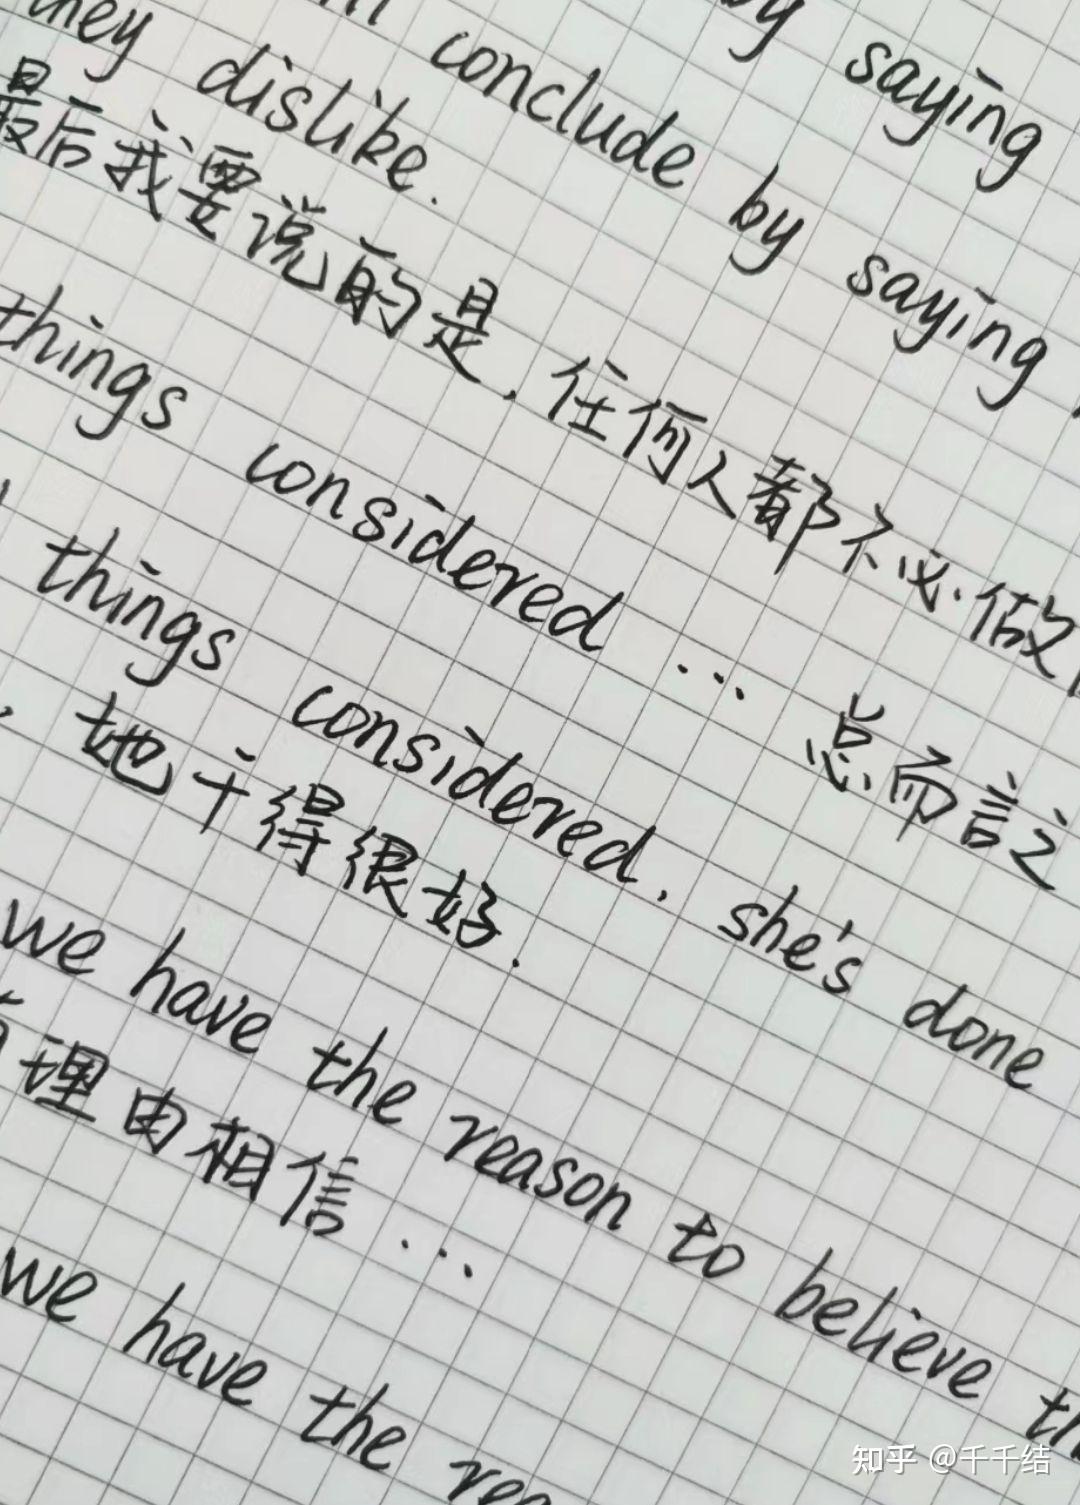 by saying
conclude by saying
they dislike.
最后我要说的是,任何人都不必做
things considered ... 总而言之
things considered, she's done
她干得很好.
we have the reason to believe
理由相信...
we have the
知乎 @千千结